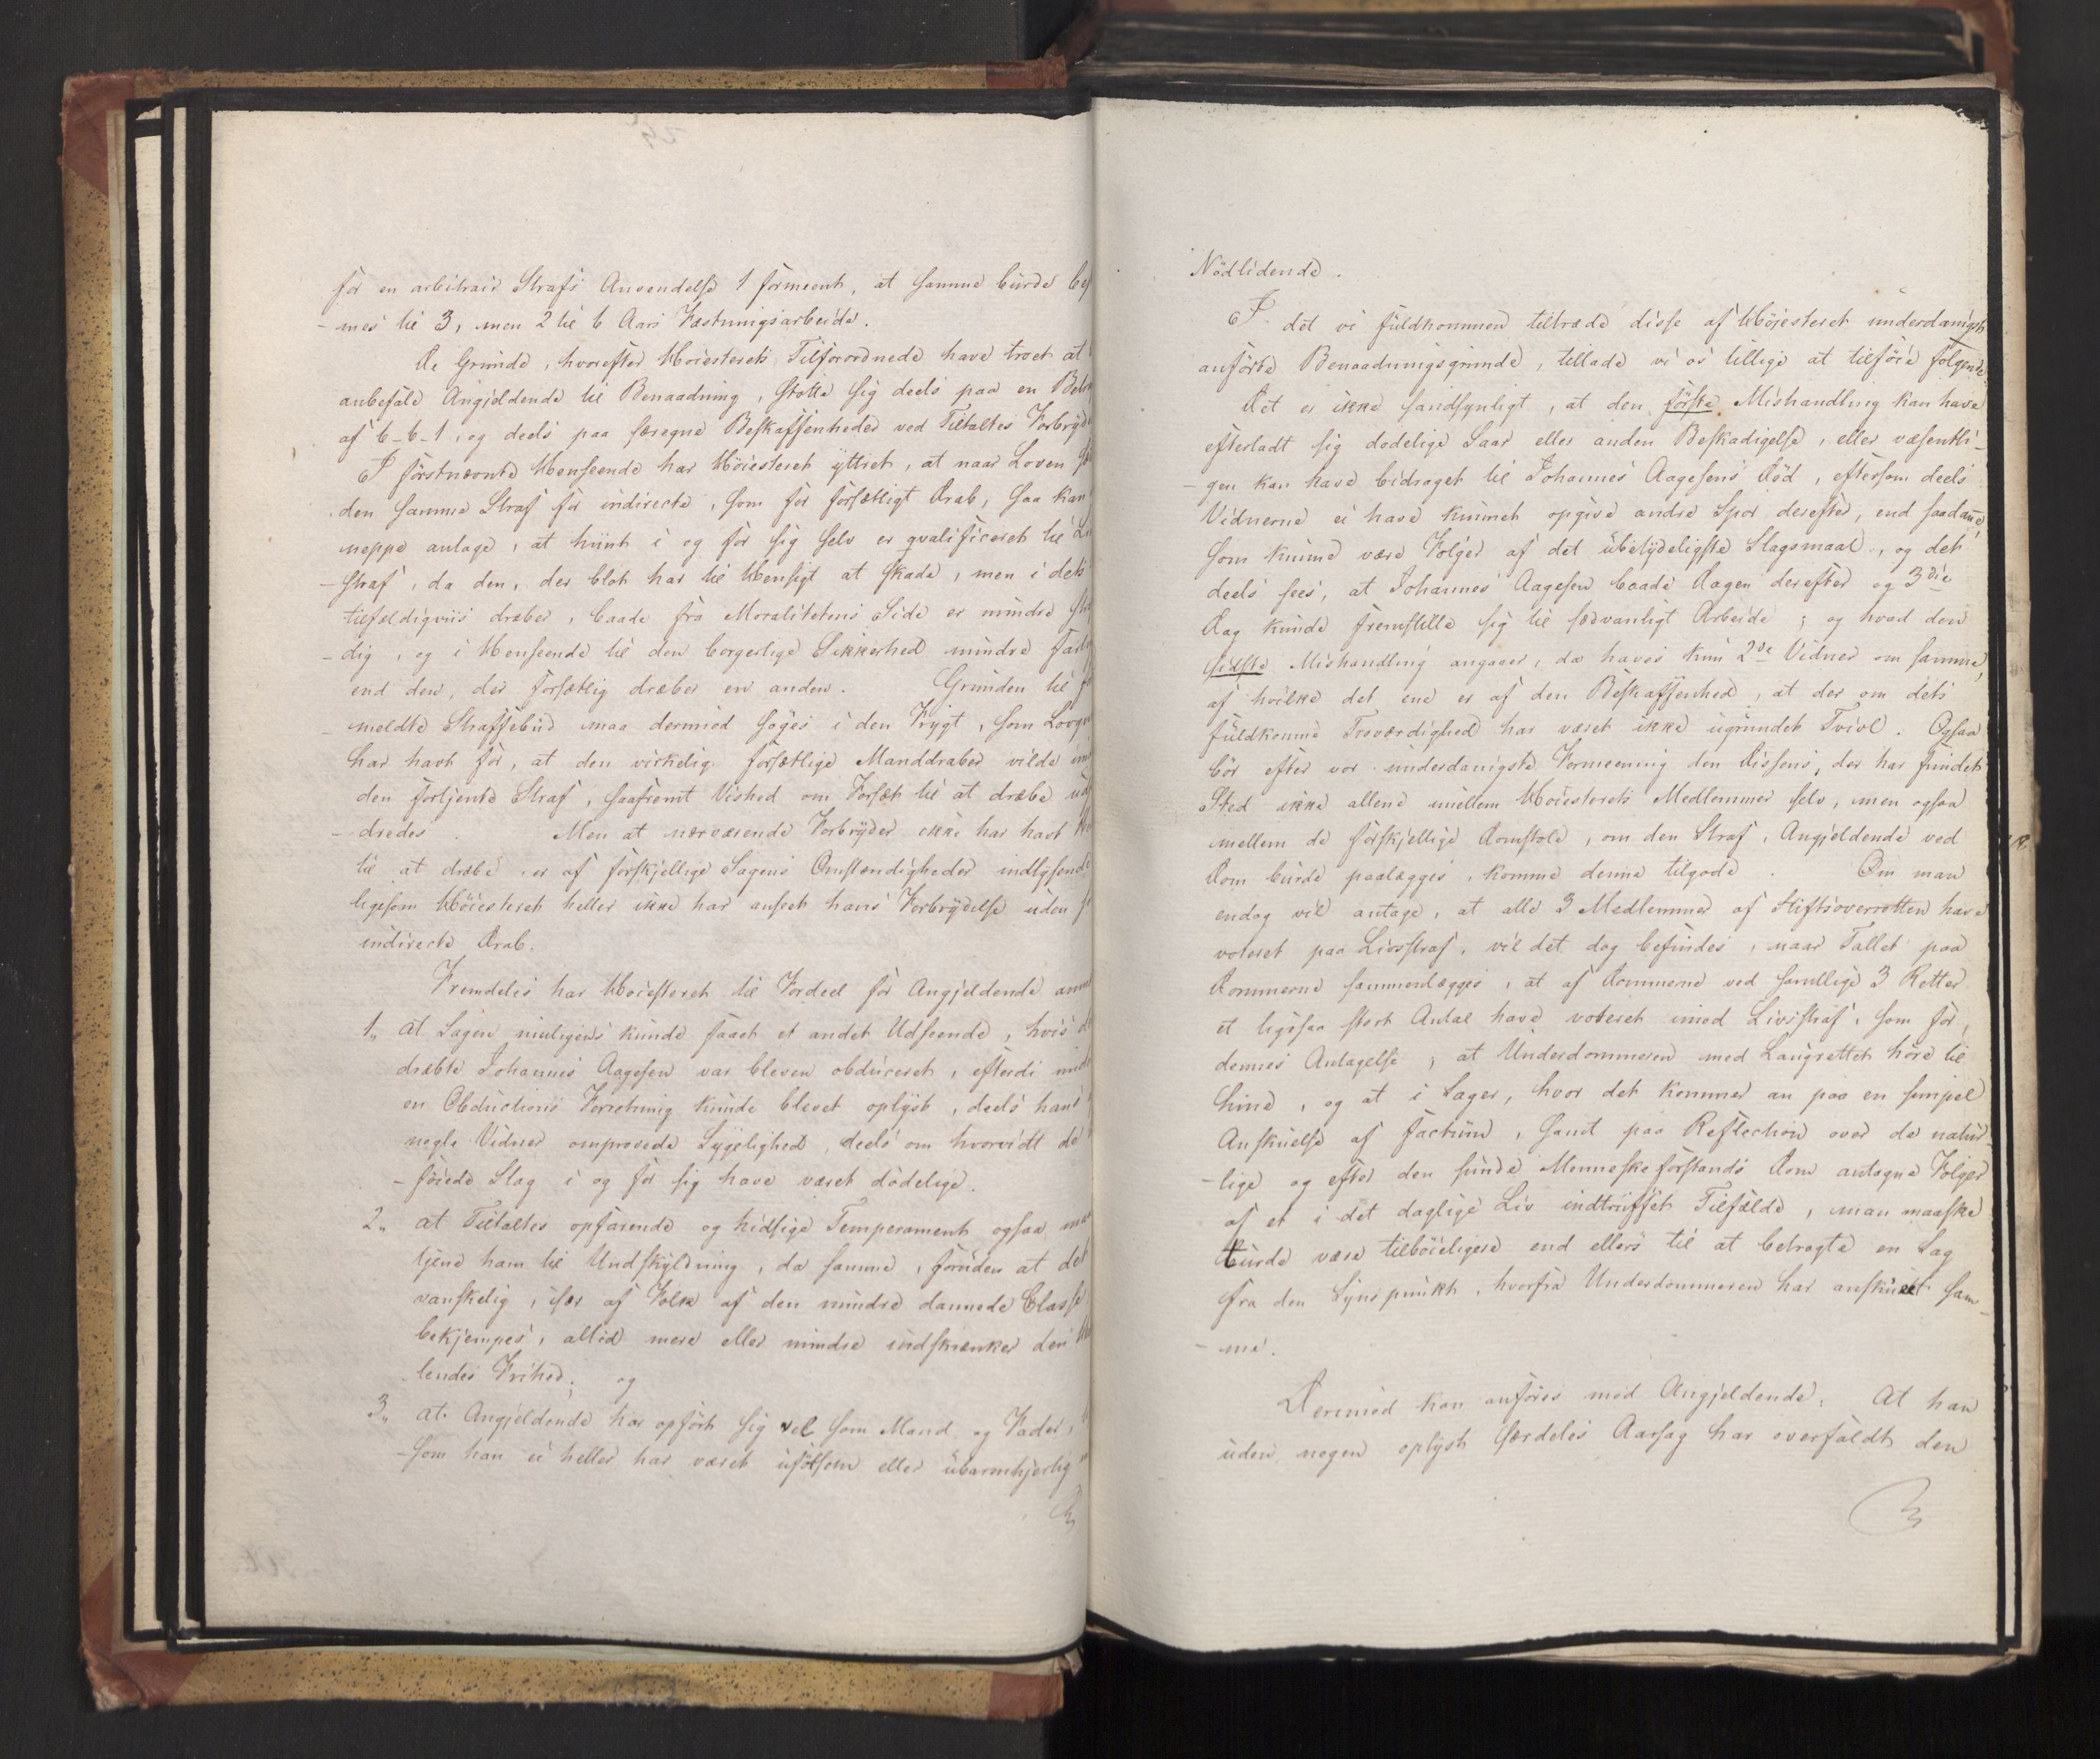 for en arbitrair Strafs Anvendelse 1 formeent, at samme burde bes
-mes til 3, men 2 til 6 Aars Fæstningsarbeide.
De Grunde, hvorefter Høiesterets Tilforordnede have troet at
anbefale Angjeldende til Benaadning, støtte sig deels paa en Betra
af 6-6-1, og deels paa særegne Beskaffenheder ved Tiltaltes Forbryde
I førstnævnte Henseende har Høiesteret yttret, at naar Loven
den samme Straf for indirecte, som for forsætligt Drab, saa kan
neppe antage, at hiint i og for sig selv er qvalificeret til Li
-straf, da den, der blot har til Hensigt at skade, men i dets
tilfældigviis dræber, baade fra Moralitetens Side er mindre
-dig, og i Henseende til den borgerlige Sikkerhed mindre farlig
end den, der forsætlig dræber en anden. Grunden til
-meldte Straffebud maa derimod søges i den Frygt, som Lovgi
har havt for, at den virkelig forsætlige Manddraber vilde und
den fortjente Straf, saafremt Vished om Forsæt til at dræbe
-dredes. Men at nærværende Forbryder ikke har havt
til at dræbe, er af forskjellige Sagens Omstændigheder indlysende
ligesom Høiesteret heller ikke har anseet hans Forbrydelse uden
indirecte Drab.
Fremdeles har Høiesteret til Fordeel for Angjeldende anm
1, at Sagen muligens kunde faaet et andet Udseende, hvis
dræbte Johannes Aagesen var bleven obduceret, efterdi
en Obductions Forretning kunde blevet oplyst, deels hans
nogle Vidner omprovede Sygelighed, deels om hvorvidt de
-føiede Slag i og for sig have været dødelige.
2, at Tiltaltes opfarende og hidsige Temperament ogsaa maa
tjene ham til Undskyldning, da samme, foruden at det
vanskelig, især af Folk af den mindre dannede Classe
bekjempes, altid mere eller mindre indskrænker den
lendes Frihed; og
3, at Angjeldende har opført sig vel som Mand og Fader,
-som han ei heller har været ufølsom eller ubarmhjertig
Nødlidende.
I det vi fuldkommen tiltræde disse af Høiesteret underdanigst
anførte Benaadningsgrunde, tillade vi os tillige at tilføie følgende.
Det er ikke sandsynligt, at den første Mishandling kan have
efterladt sig dødelige Saar eller anden Beskadigelse, eller væsentli-
-gen kan have bidraget til Johannes Aagesens Død, eftersom deels
Vidnerne ei have kunnet opgive andre Spor derefter, end saadane
som kunne være Følger af det ubetydeligste Slagsmaal, og det
deels sees, at Johannes Aagesen baade Dagen derefter og 3die
Dag kunde fremstille sig til sædvanligt Arbeide; og hvad den
sidste Mishandling angaaer, da haves kun 2de Vidner om samme,
af hvilke det ene er af den Beskaffenhed, at der om dets
fuldkomne Troværdighed har været ikke ugrundet Tvivl. Ogsaa
bør efter vor underdanigste Formeening den Dissens, der har fundet
Sted ikke allene imellem Høiesterets Medlemmer selv, men ogsaa
mellem de forskjellige Domstole, om den Straf, Angjeldende ved
Dom burde paalægges, komme denne tilgode. Om man
endog vil antage, at alle 3 Medlemmer af Stiftsoverretten have
voteret paa Livsstraf, vil det dog befindes, naar Tallet paa
Dommerne sammenlægges, at af Dommerne ved samtlige 3 Retter
et ligesaa stort Antal have voteret imod Livsstraf, som for
dennes Antagelse; at Underdommeren med Laugrettet høre til
hine, og at i Sager, hvor det kommer an paa en simpel
Anskuelse af factum, samt paa Reflection over de natur
-lige og efter den sunde Menneskeforstands Dom antagne Følger
af et i det daglige Liv indtruffet Tilfælde, man maaske
turde være tilbøieligere end ellers til at betragte en Sag
fra den Synspunkt, hvorfra Underdommeren har anskuet sam-
-me.
Derimod kan anføres mod Angjeldende: At han
uden nogen oplyst særdeles Aarsag har overfaldt den